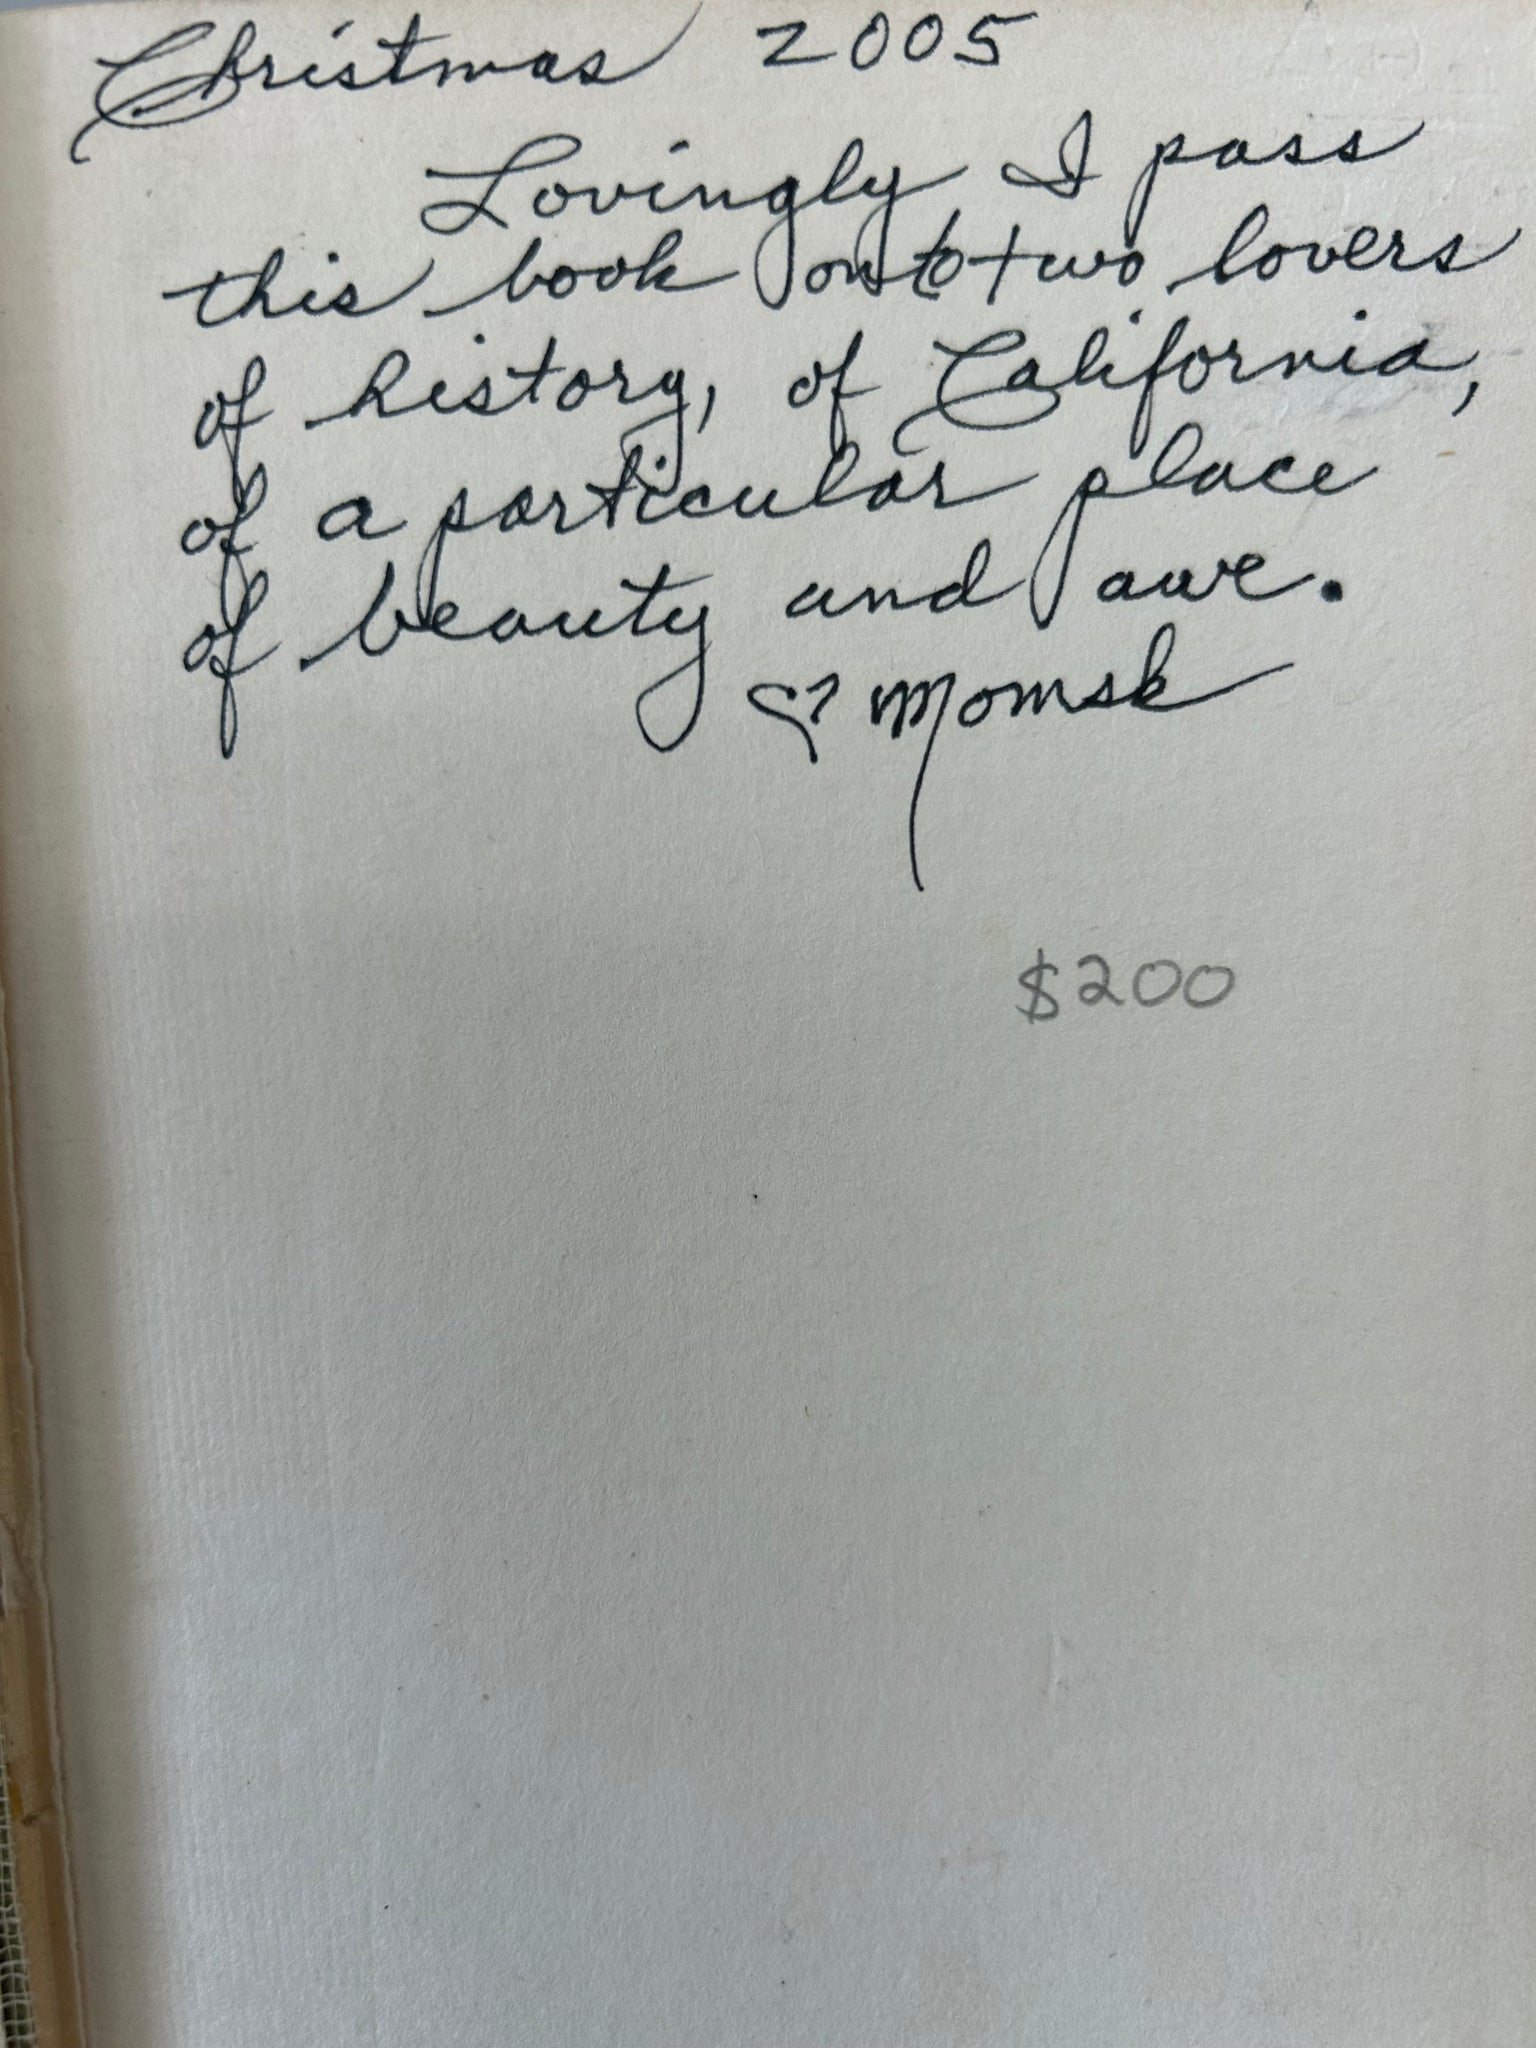 Christmas 2005
Lovingly I pass
this book onto two lovers
of history, of California,
of a particular place
of beauty and awe.
♡ Momsk
$200